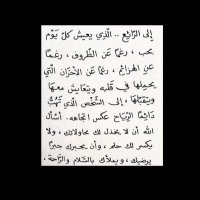 إلى الرَّائِع .. الَّذِي يعيش كلّ يَوْم
بحب ، رغمًا عَن الظّروف ، رغمًا
عن الهزائِم ، رغمًا عَن الأحْزان الَّتي
يحملها في قلبه ويتعايش معها
ويتقبّلها ، إلى الشّخص الّذي تَهُبُّ
دائِمًا الرِّيَاح عكس اتجاهه. أسأل
الله أن لا يخذل لك محاولات ، ولا
يكسر لك حلم ، وأن يجبرك جبرًا
يرضيك ، ويملأك بالسَّلام والرَّاحة .